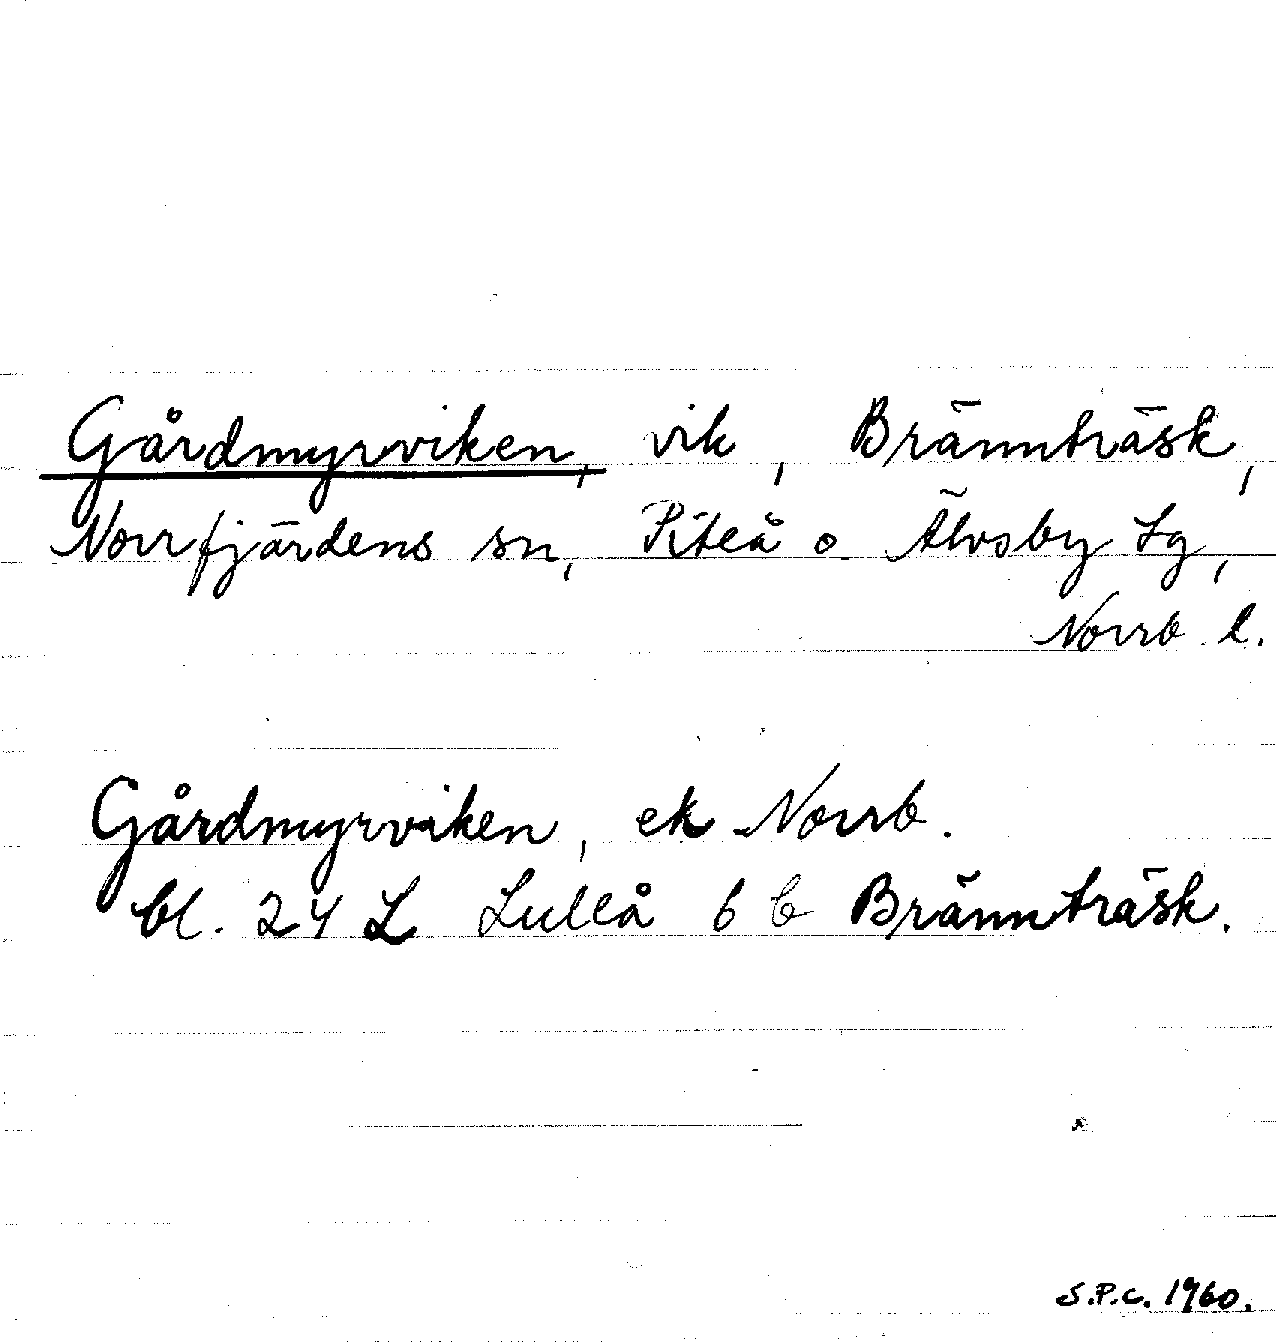 Gårdmyrviken, vik, Brännträsk,
Norrfjärdens sn, Piteå o Älvsby tg,
Norrb l.
Gårdmyrviken, ek Norrb.
bl. 24 L Luleå 6 b Brännträsk.
S.P.C. 1960.